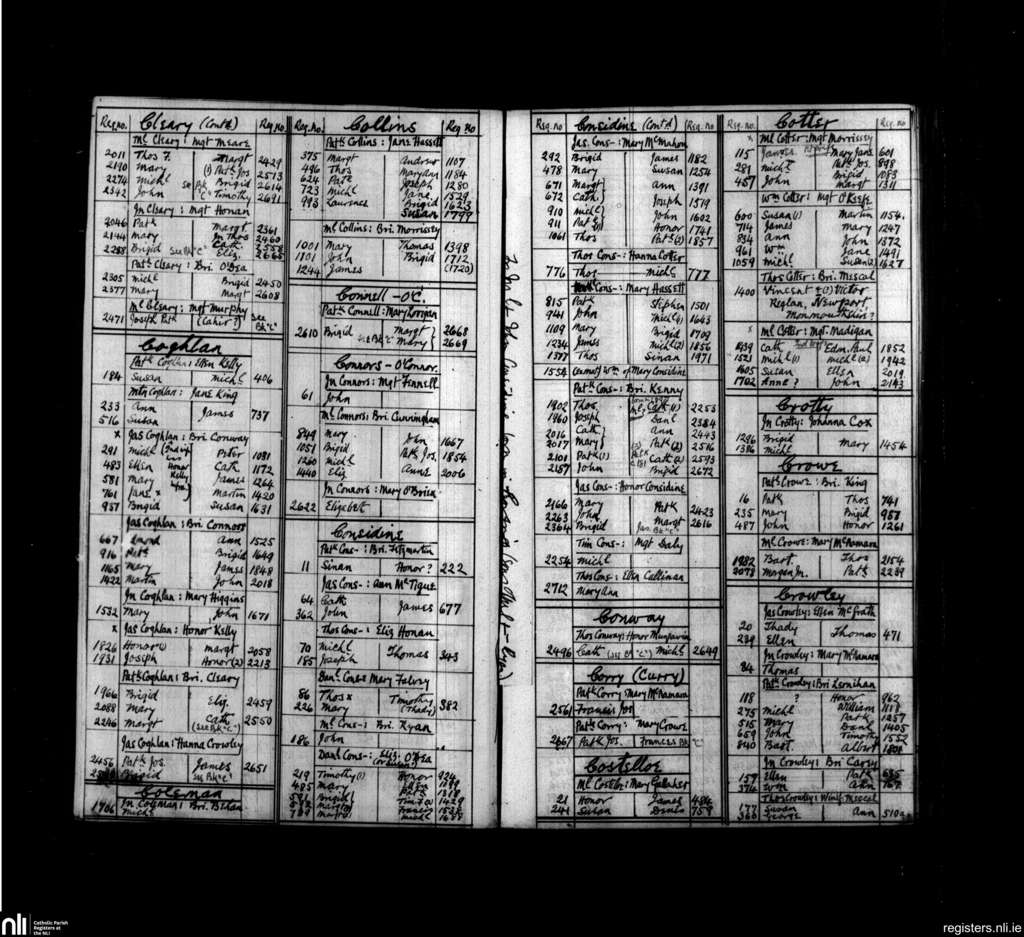 Reg no. Cleary (Contd) Reg No.
Ml Cleary : Mgt Meare
2011 Thos F. Margt 2429
2110 Mary (1) Patk Jos 2513
2274 Michl see Bk Brigid 2614
2342 John "C" Timothy 2691
Jn Cleary : Mgt Honan
2046 Patk Margt. 2361
2144 Mary Jn Thos 2460
2258 Brigid See Bk "C" Eliz.
Patk Cleary : Bri. O'Dea
2305 Michl Brigid 2450
2377 Mary Margt 2608
Ml Cleary : Mgt Murphy
2471 Joseph Patk (Cahir ?) see Bk "C"
Coghlan
Patk Coghlan : Ellen Kelly
184 Susan Michl 406
Mtn Coghlan : Jane King
233 Ann James 737
516 Susan
x Jas Coghlan : Bri Conway
291 Michl Peter 1091
483 Ellen Cath 1172
581 Mary James 1264
761 Jane x Martin 1420
957 Brigid Susan 1631
Jas Coghlan : Bri. Connors
667 David Ann 1525
916 Brigid 1649
1165 Mary James 1848
1422 Martin John 2018
Jn Coghlan : Mary Higgins
1532 Mary John 1671
x Jas Coghlan : Honor Kelly
1826 Honor (1) Margt 2058
1931 Joseph Honor (2) 2213
Patk Coghlan : Bri. Cleary
1966 Brigid Eliz. 2459
2088 Mary Cath 2550
2246 Margt (See Bk "C")
Jas Coghlan : Hanna Crowley
2456 Patk Jos. James 2651
Brigid see Bk "C"
Coleman
Jn Coghlan : Bri. Behan
1706 Michl
Reg. No. Collins Reg No
Patk Collins : Jane Hassett
375 Margt Andrew 1107
496 Thos Mary Ann 1184
624 Patk Joseph 1280
723 Michl Jane 1529
993 Laurence Brigid 1623
Susan 1799
Ml Collins : Bri. Morrissey
1001 Mary Thomas 1398
1101 John Brigid 1712
1244 James (1720)
Connell - O'C.
Patk Connell : Mary Corrigan
2610 Brigid see Bk "C" Margt } 2668
Mary } 2669
Connors - O'Connor.
Jn Connors : Mgt Finnell
61 John
Ml Connors : Bri. Cunningham
849 Mary John 1667
1051 Brigid Patk Jos. 1854
1260 Michl Anne 2006
1440 Eliz
Jn Connors : Mary O'Brien
2622 Elizabeth
Considine
Patk Cons- : Bri. Fitzmartin
11 Sinan Honor ? 222
Jas Cons- : Ann McTigue
64 Cath James 677
362 John
Thos Cons- : Eliz Honan
70 Michl Thomas 343
185 Joseph
Danl Cons : Mary Falvey
86 Thos x Timothy (Thady) 382
226 Mary
Ml Cons- : Bri Ryan
186 John
Danl Cons- : Eliz. O'Dea
219 Timothy (1) Honor 924
485 Mary
591 Brigid
Reg. no Considine (Contd) Reg. No
Jas. Cons- : Mary McMahon
292 Brigid James 1182
478 Mary Susan 1254
671 Margt } Ann 1391
672 Cath } Joseph 1579
910 Michl } John 1602
911 Patk } Honor 1741
1061 Thos Patk (2) 1857
Thos Cons- : Hanna Cotter
776 Thos Michl 777
Cons- : Mary Hassett
815 Patk Stephen 1501
941 John Michl (1) 1643
1109 Mary Brigid 1709
1234 James Michl (2) 1856
1377 Thos Sinan 1971
1554 Wm of Mary Considine
Patk Cons- : Bri. Kenny
1902 Thos Cath (1) 2253
1960 Joseph Danl 2384
2016 Cath } Ann 2443
2017 Mary } Patk (2) 2516
2101 Patk (1) Cath (2) 2593
2157 John Brigid 2672
Jas Cons- : Honor Considine
2166 Mary Patk 2423
2263 John Margt 2616
2364 Brigid See Bk "C"
Tim Cons- : Mgt Daly
2254 Michl
Thos Cons : Ellen Callinan
2712 Mary Ann
Conway
Thos Conway : Honor
2496 Cath (see Bk "C") Michl 2649
Corry (Curry)
Patk Corry : Mary McNamara
2561 Francis Jos
Patk Corry : Mary Crowe
2667 Patk Jos. Frances Bk "C"
Costelloe
Ml Costloe : Mary Gallaher
21 Honor James 486
241 Susan Denis 759
Reg. no. Cotter Reg. No
x Ml Cotter : Mgt Morrissey
115 James Mary Jane 601
281 Michl Patk Jos. 898
457 John Brigid 1083
Margt 1311
Wm Cotter : Mgt O'Keefe
600 Susan (1) Martin 1154
714 James Mary 1247
834 Ann John 1372
961 Wm Jane 1491
1059 Michl Susan (2) 1627
Thos Cotter : Bri. Mescal
1400 Vincent + (1) Victor
Reglan, Newport
Monmouthshire ?
x Ml Cotter : Mgt. Madigan
1439 Cath Edm. Paul 1852
1521 Michl (1) Michl (2) 1942
1605 Susan Ellen 2019
1702 Anne ? John 2143
Crotty
Jn Crotty : Johanna Cox
1296 Brigid Mary 1454
1386 Michl
Crowe
Patk Crowe : Bri. King
16 Patk Thos 741
235 Mary Brigid 957
487 John Honor 1261
Ml Crowe : Mary McNamara
1982 Bart. Thos 2154
2073 Patk 2239
Crowley
Jas Crowley : Ellen McGrath
20 Thady Thomas 471
239 Ellen
Jn Crowley : Mary McNamara
24 Thomas
Patk Crowley : Bri Lernihan
118 ? Honor 962
275 Michl William 1118
515 Mary Patk 1257
659 John Danl 1405
840 Bart. Timothy 1552
Albert
Jn Crowley : Bri Casey
159 Ellen Patk
374 Wm Ann
Thos Crowley : Winif. Mescal
177 Susan Ann 510a
360 George
nli Catholic Parish
Registers at
the NLI
registers.nli.ie